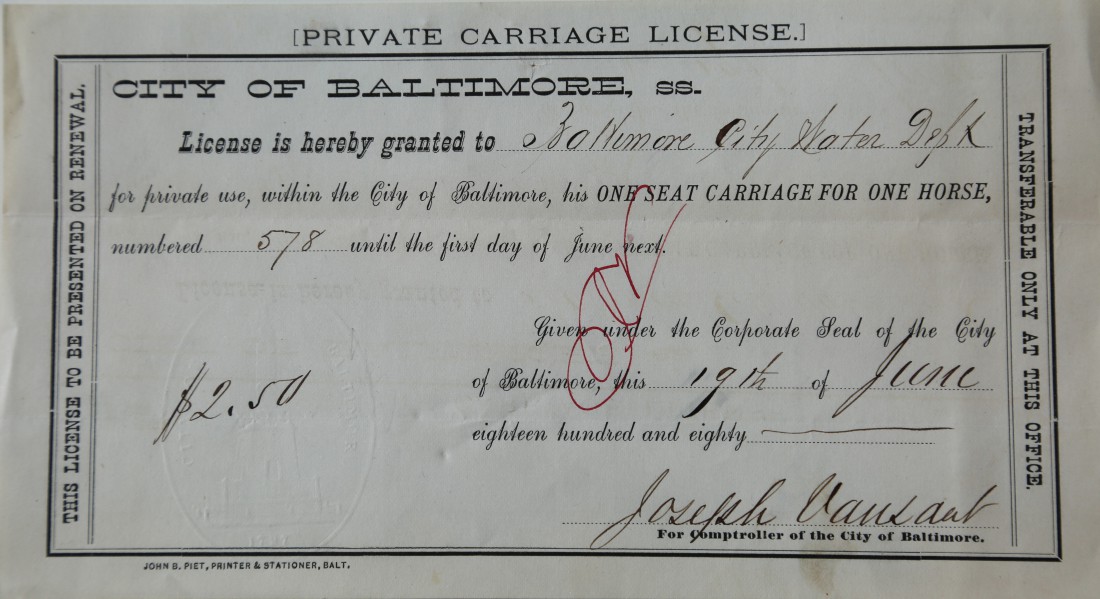 [PRIVATE CARRIAGE LICENSE.]
CITY OF BALTIMORE, ss.
License is hereby granted to Baltimore City Water Dept
for private use, within the City of Baltimore, his ONE SEAT CARRIAGE FOR ONE HORSE,
numbered 578 until the first day of June next.
Given under the Corporate Seal of the City
of Baltimore, this 19th of June
eighteen hundred and eighty
$2.50
Joseph Vansant
For Comptroller of the City of Baltimore.
THIS LICENSE TO BE PRESENTED ON RENEWAL.
TRANSFERABLE ONLY AT THIS OFFICE.
JOHN B. PIET, PRINTER & STATIONER, BALT.